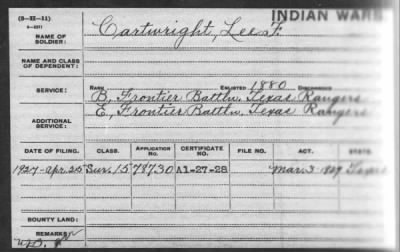 (3-II-11)
INDIAN WARS
NAME OF SOLDIER: Cartwright, Lee F.
NAME AND CLASS OF DEPENDENT:
SERVICE: RANK ENLISTED 1880 DISCHARGED
B, Frontier Battln, Texas Rangers
ADDITIONAL SERVICE: E, Frontier Battln, Texas Rangers
DATE OF FILING. CLASS. APPLICATION NO. CERTIFICATE NO. FILE NO. ACT. STATE.
1927-Apr. 25 Sur. 1578730 A1-27-28 Mar. 3-1927 Texas
BOUNTY LAND:
REMARKS: